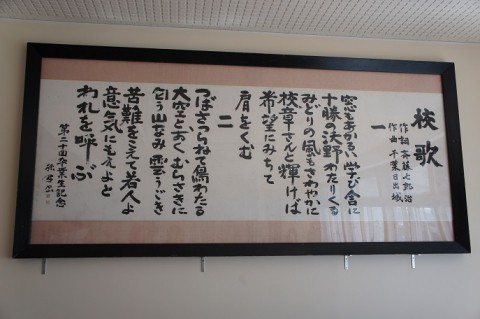 校歌
作詞 斉藤七郎治
作曲 千葉日出城
一
窓もあかるい学び舎に
十勝の大野わたりくる
みどりの風もさわやかに
校章さんと輝けば
希望にみちて
肩をくむ
二
つばさつらねて鳥わたる
大空とおくむらさきに
匂う山なみ雲うごき
苦難をこえて若人よ
意気にもえよと
われを呼ぶ
第二十回卒業生記念